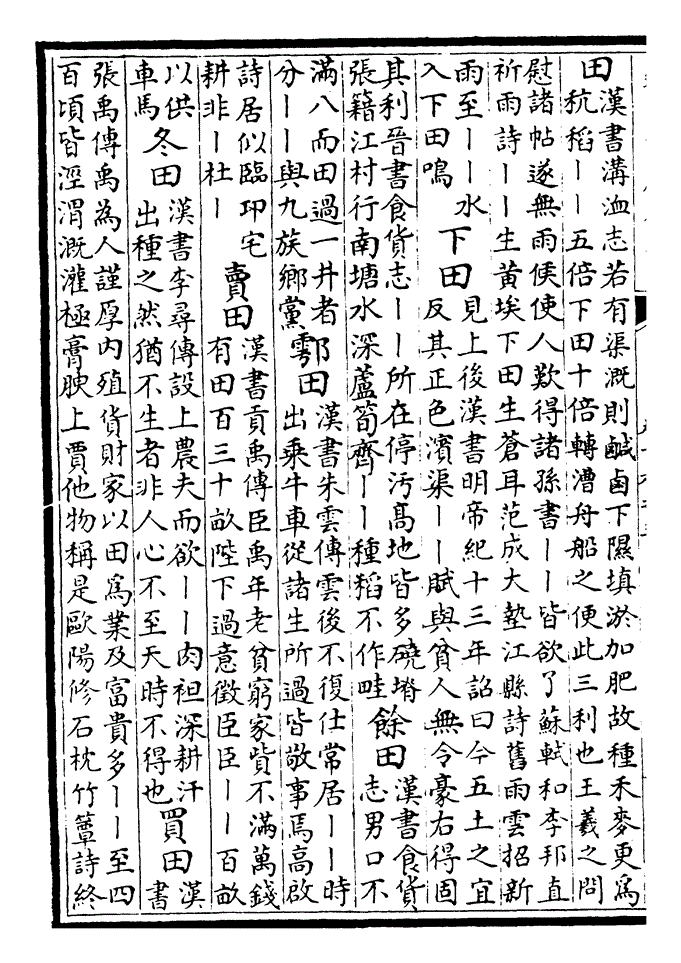 田
漢書溝洫志若有渠溉則鹹鹵下隰填淤加肥故種禾麥更爲
秔稻丨丨五倍下田十倍轉漕舟船之便此三利也王羲之問
慰諸帖遂無雨候使人歎得諸孫書丨丨皆欲了蘇軾和李邦直
祈雨詩丨丨生黄埃下田生蒼耳范成大墊江縣詩舊雨雲招新
雨至丨丨水
入下田鳴
下田
見上後漢書明帝紀十三年詔曰今五土之宜
反其正色濱渠丨丨賦與貧人無令豪右得固
其利晉書食貨志丨丨所在停汚髙地皆多磽塉
張籍江村行南塘水深蘆筍齊丨丨種稻不作畦
餘田
漢書食貨
志男口不
滿八而田過一井者
分丨丨與九族鄉黨
鄠田
漢書朱雲傳雲後不復仕常居丨丨時
出乘牛車從諸生所過皆敬事焉高啟
詩居似臨卭宅
耕非丨杜丨
賣田
漢書貢禹傳臣禹年老貧窮家貲不滿萬錢
有田百三十畝陛下過意徵臣臣丨丨百畝
以供
車馬
冬田
漢書李尋傳設上農夫而欲丨丨肉袒深耕汗
出種之然猶不生者非人心不至天時不得也
買田
漢
書
張禹傳禹為人謹厚内殖貨財家以田爲業及富貴多丨丨至四
百頃皆涇渭溉灌極膏腴上賈他物稱是歐陽修石枕竹簟詩終